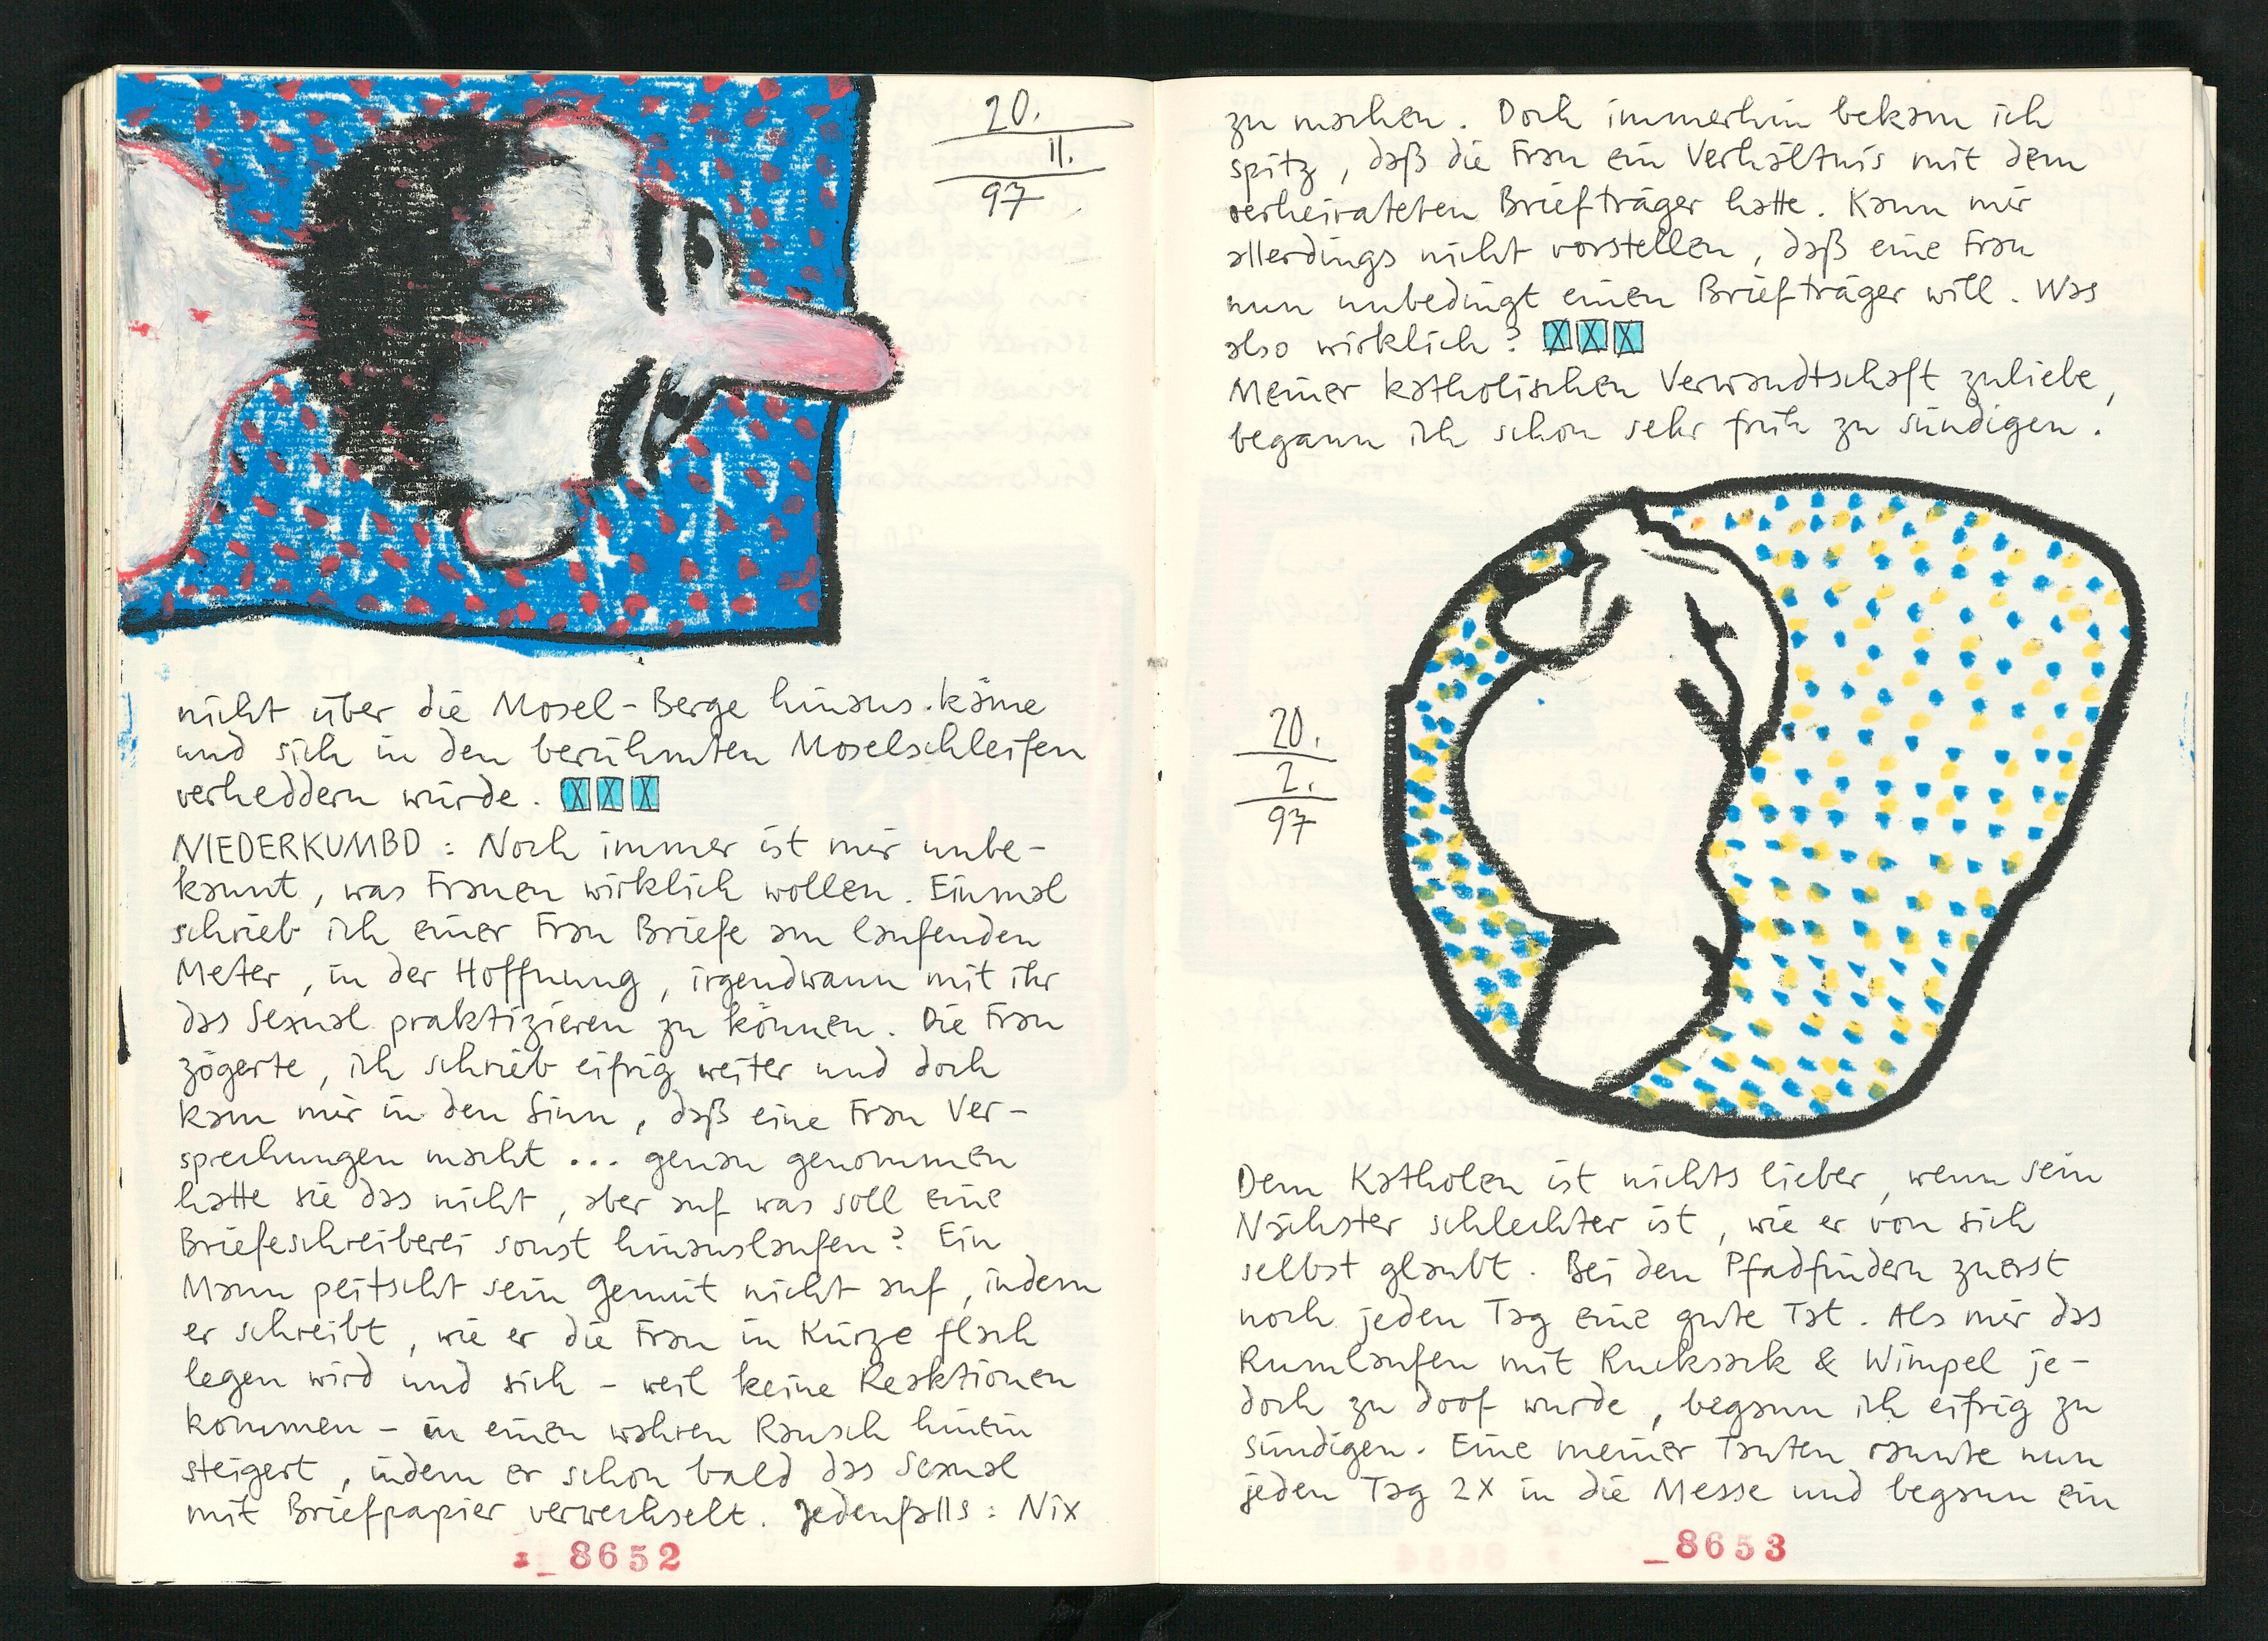 20.
11.
97
nicht über die Mosel-Berge hinaus käme
und sich in den berühmten Moselschleifen
verheddern würde. XXX
NIEDERKUMBD : Noch immer ist mir unbe-
kannt, was Frauen wirklich wollen. Einmal
schrieb ich einer Frau Briefe am laufenden
Meter, in der Hoffnung, irgendwann mit ihr
das Sexual praktizieren zu können. Die Frau
zögerte, ich schrieb eifrig weiter und doch
kam mir in den Sinn, daß eine Frau Ver-
sprechungen macht ... genau genommen
hatte sie das nicht, aber auf was soll eine
Briefeschreiberei sonst hinauslaufen? Ein
Mann peitscht sein Gemüt nicht auf, indem
er schreibt, wie er die Frau in Kürze flach
legen wird und sich - weil keine Reaktionen
kommen - in einen wahren Rausch hinein
steigert, indem er schon bald das Sexual
mit Briefpapier verwechselt. Jedenfalls: Nix
8652
zu machen. Doch immerhin bekam ich
spitz, daß die Frau ein Verhältnis mit dem
verheirateten Briefträger hatte. Kann mir
allerdings nicht vorstellen, daß eine Frau
nun unbedingt einen Briefträger will. Was
also wirklich? XXX
Meiner katholischen Verwandtschaft zuliebe,
begann ich schon sehr früh zu sündigen.
20.
2.
97
Dem Katholen ist nichts lieber, wenn sein
Nächster schlechter ist, wie er von sich
selbst glaubt. Bei den Pfadfindern zuerst
noch jeden Tag eine gute Tat. Als mir das
Rumlaufen mit Rucksack & Wimpel je-
doch zu doof wurde, begann ich eifrig zu
sündigen. Eine meiner Tanten rannte nun
jeden Tag 2X in die Messe und begann ein
8653